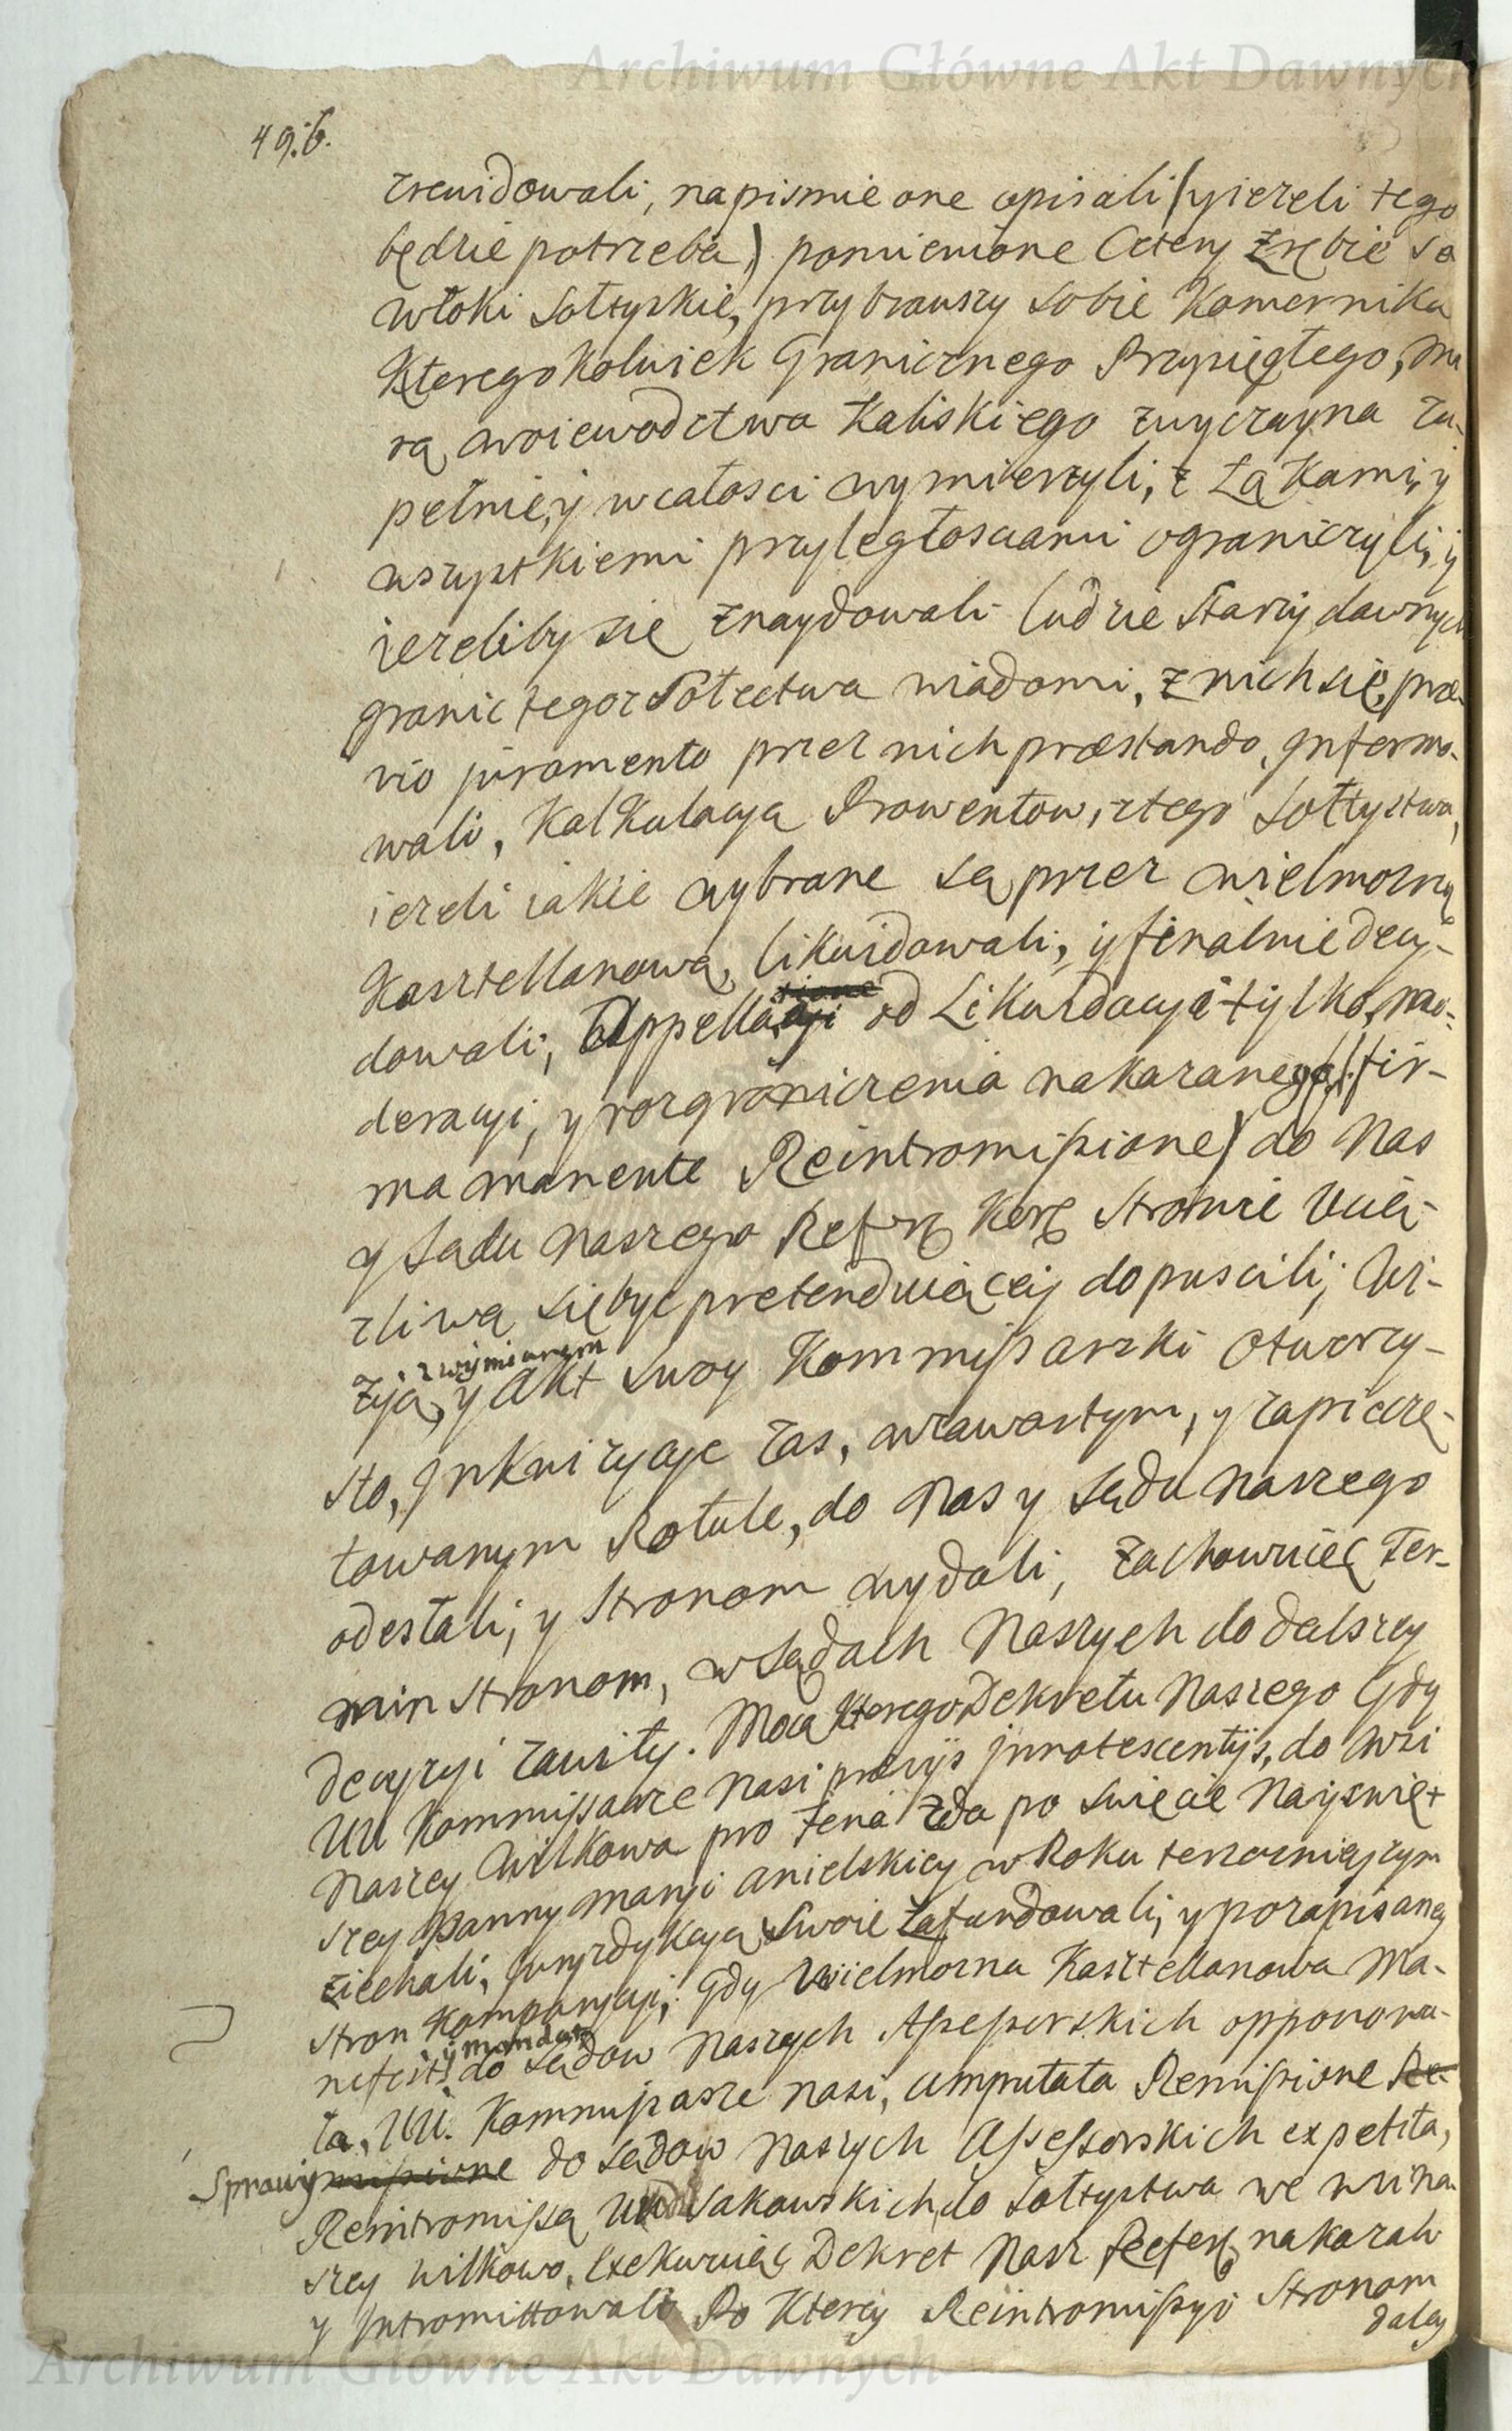 Archiwum Główne Akt Dawnych
49.b.
zrewidowali, napismie one opisali (yiezeli tego
będzie potrzeba) pomienione Cztery Zrębie sa
włoki Sołtyskie, przybrawszy sobie Komornika
Ktoregokolwiek Granicznego Przysięgłego, mia
rą woiewodctwa Kaliskiego zwyczayna zu-
pełnie, y wcałosci wymierzyli, z Łąkami, y
wszystkiemi przyległosciami ograniczyli, y
iezeliby się znaydowali ludzie Starzy dawnych
granic tegoz Sołectwa wiadomi, z nich się, præ-
vio juramento przez nich præstando, Informo-
wali, Kalkulacyą Prowentow, ztego Sołtystwa,
iezeli iakie wybrane są przez wielmozną
Kasztellanową, likwidowali, y finalnie decy-
dowali, Appellacyi od Likwidacyi tylko, pon-
deracyi, y rozgraniczenia nakazanego (fir-
ma manente Reintromissione) do Nas
y Sadu naszego Stronie Ucią-
zliwą siebyc pretenduiącey dopuscili; Wi-
zyą, y Akt swoy Kommissarski Otworzy-
z wymiarem
sto, Inkwizycye zas, wzawartym, y zapieczę-
towanym Rotule, do Nas y Sądu naszego
odesłali, y Stronom wydali, Zachowuiąc Ter-
min Stronom, w Sądach Naszych do dalszey
decyzyi zawity. Mocą Ktorego Dekretu Naszego Gdy
UU Kommissarze Nasi prævijs Innotescentijs, do Wsi
Naszey Wilkowa pro feria 2da po Swięcie Nayswięt
szey Panny Maryi Anielskiey w Roku terazniejszym
ziechali, Juryzdykcyą Swoie Zafundowali, y pozapisaney
Stron Komparycyi, Gdy Wielmozna Kasztellanowa Ma-
nifest do Sądow Naszych Assessorskich opponowa-
y mandat
ła, UU. Kommissarze nasi, amputata Remissione Re-
Sprawy missione do Sądow Naszych Assessorskich expetita,
Reintromissą UU Sakowskich do Sołtystwa we wsi na-
szey Wilkowo, Exekwuiąc Dekret Nasz nakazali
y Intromittowali Po Ktorey Reintromissyi Stronom
daley
Archiwum Główne Akt Dawnych